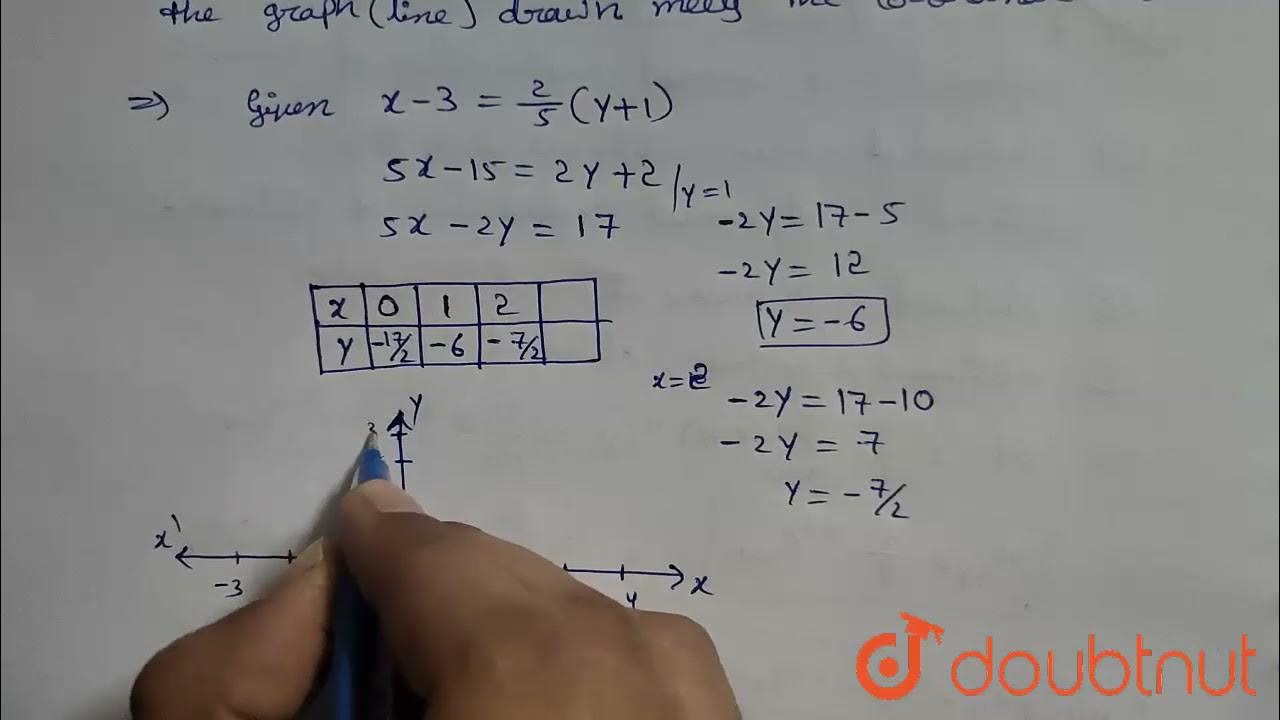 the graph (line) drawn meets the
⇒) Given x - 3 = 2/5 (y+1)
5x - 15 = 2y + 2
5x - 2y = 17
x 0 1 2
y -17/2 -6 -7/2
y=1
-2y = 17 - 5
-2y = 12
y = -6
x=2
-2y = 17 - 10
-2y = 7
y = -7/2
y
x' x
-3 4
doubtnut